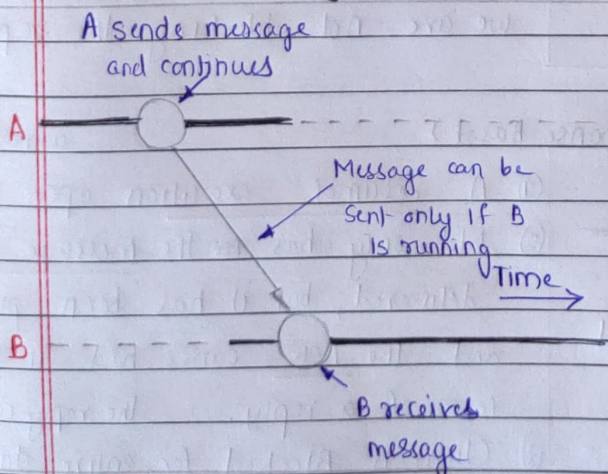 A sends message
and continues
A
Message can be
sent only if B
is running
Time
B
B receives
message